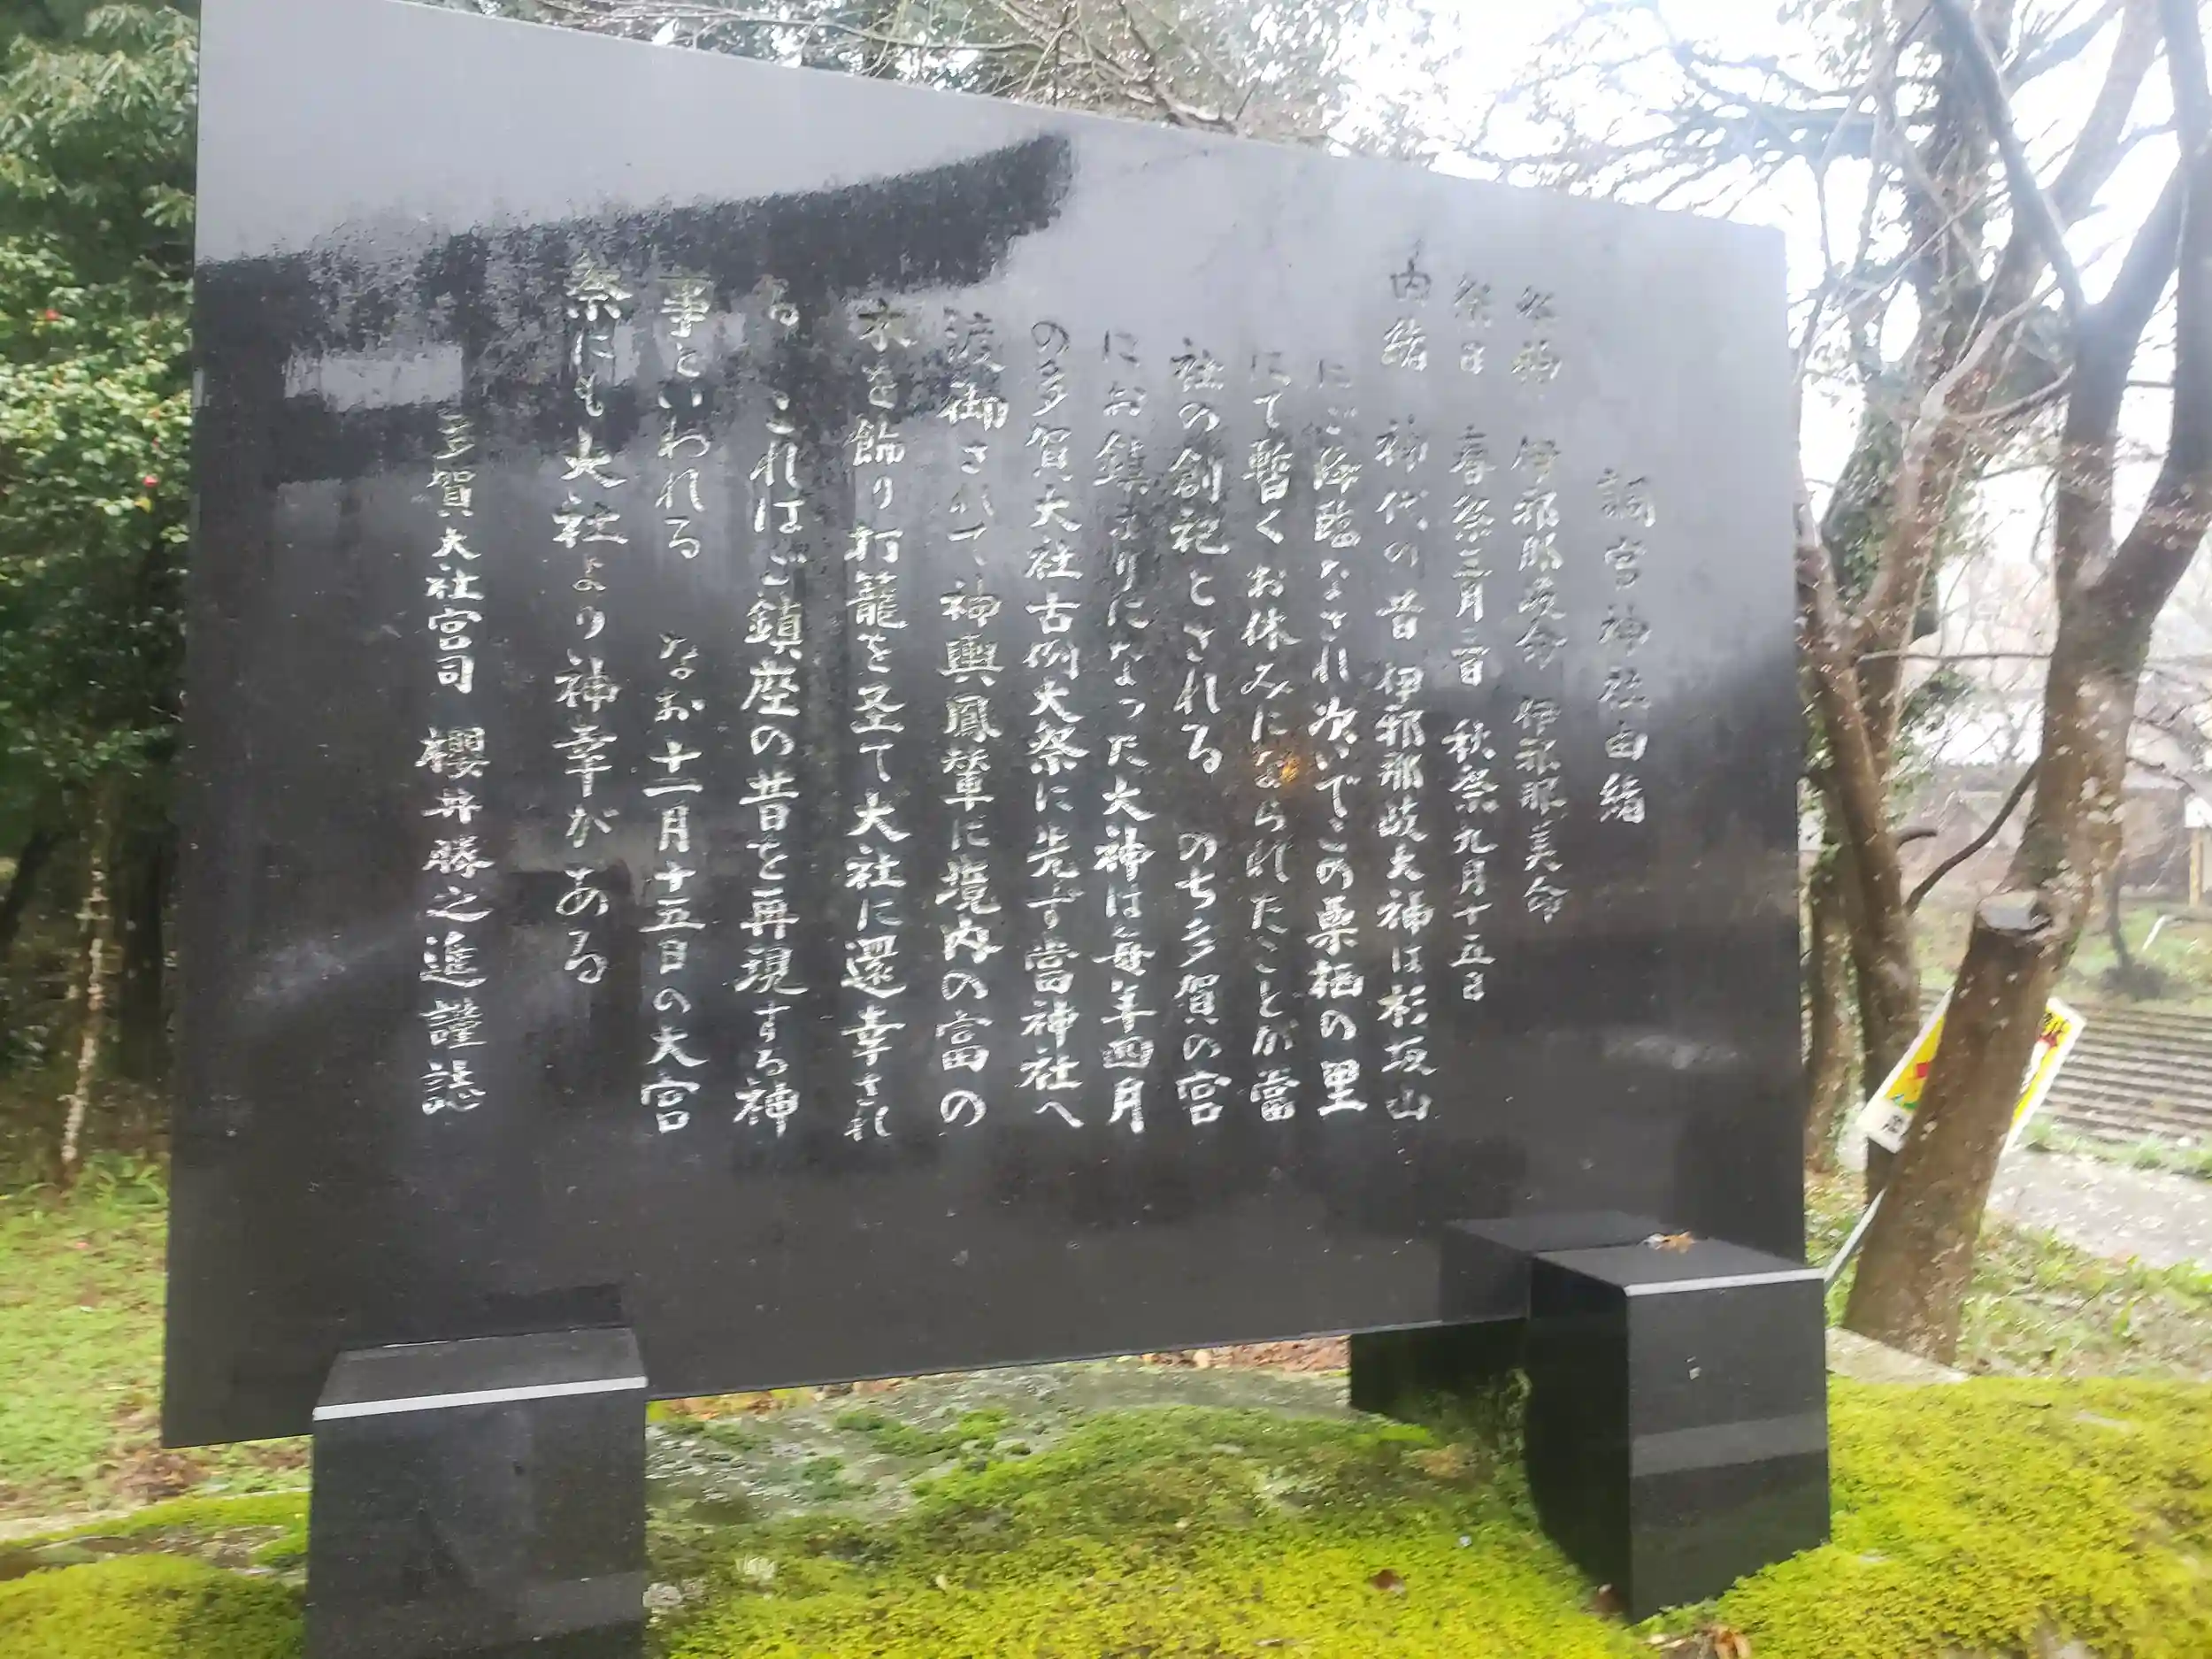 調宮神社由緒
祭神 伊邪那岐命 伊邪那美命
祭日 春祭三月三日 秋祭九月十五日
内緒 神代の昔 伊邪那岐大神は杉坂山
にご降臨なされ次いでこの栗栖の里
にて暫くお休みになられたことが當
社の創祀とされる のち多賀の宮
にお鎮まりになった大神は毎年四月
の多賀大社古例大祭に先ず當神社へ
渡御されて神輿鳳輦に境内の富の
木を飾り打籠を立て大社に還幸され
る これはご鎮座の昔を再現する神
事といわれる なお十一月十五日の大宮
祭にも大社より神幸がある
多賀大社宮司 櫻井勝之進謹誌